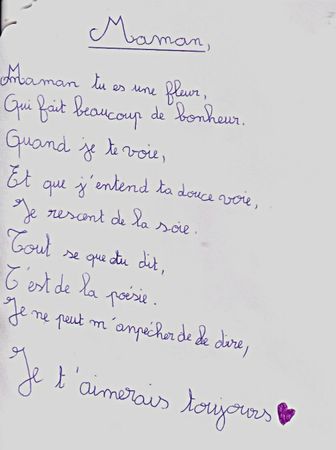 Maman,
Maman tu es une fleur,
Qui fait beaucoup de bonheur.
Quand je te voie,
Et que j'entend ta douce voie,
Je rescent de la soie.
Tout se que tu dit,
C'est de la poésie.
Je ne peut m'anpécher de le dire,
Je t'aimerais toujours